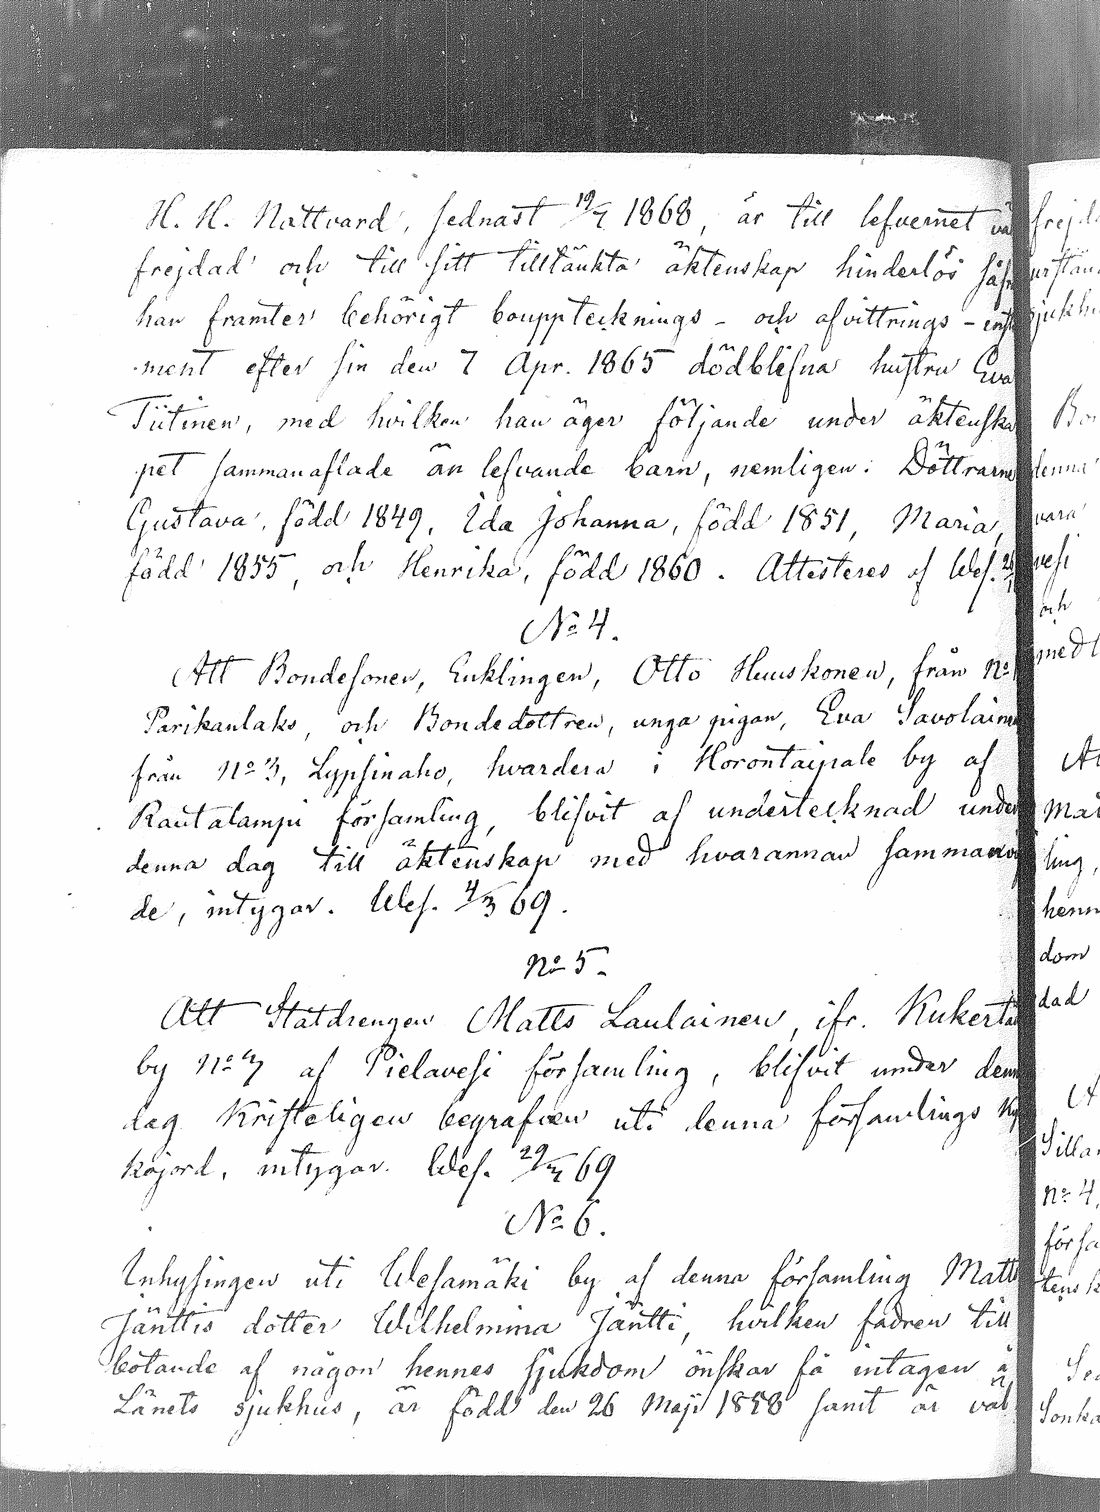 H. H. Nattvard, sednast 19/7 1868, är till lefvernet vä
frejdad och till sitt tilltänkta äktenskap hinderlös såfr
han framter behörigt bouppteknings- och afvittrings-inst
ment efter sin den 7 Apr. 1865 dödblefna hustru Eva
Tiitinen, med hvilken han äger följande under äktenska
pet sammanaflade än lefvande barn, nemligen: Döttrarne
Gustava, född 1849, Ida Johanna, född 1851, Maria,
född 1855, och Henrika, född 1860. Attesteres af Wes.
No 4.
Att Bondesonen, Enklingen, Otto Huuskonen, från No
Parikanlaks, och Bondedottren, unga pigan, Eva Savolaine
från No 3, Lypsinaho, hvardera i Horontaipale by af
Rautalampi församling, blifvit af undertecknad under
denna dag till äktenskap med hvarannan samman
de, intygar. Wes. 4/3 69.
No 5.
Att Statdrengen Matts Laulainen, ifr. Kukerta
by No 7 af Pielavesi församling, blifvit under denn
dag kristeligen begrafven uti denna församlings ky
kojord, intygar. Wes. 29/ 69
No 6.
Inhysingen uti Wesamäki by af denna församling Matt
Jänttis dotter Wilhelmina Jäntti, hvilken fadren till
botande af någon hennes sjukdom önskar få intagen å
Länets sjukhus, är född den 26 Maji 1858 samt är väl
frejd
sjukh
Bon
denna
vara
vesi
och
med
Mat
ling,
henn
dom
dad
Silla
No 4,
försa
tensk
Sonka